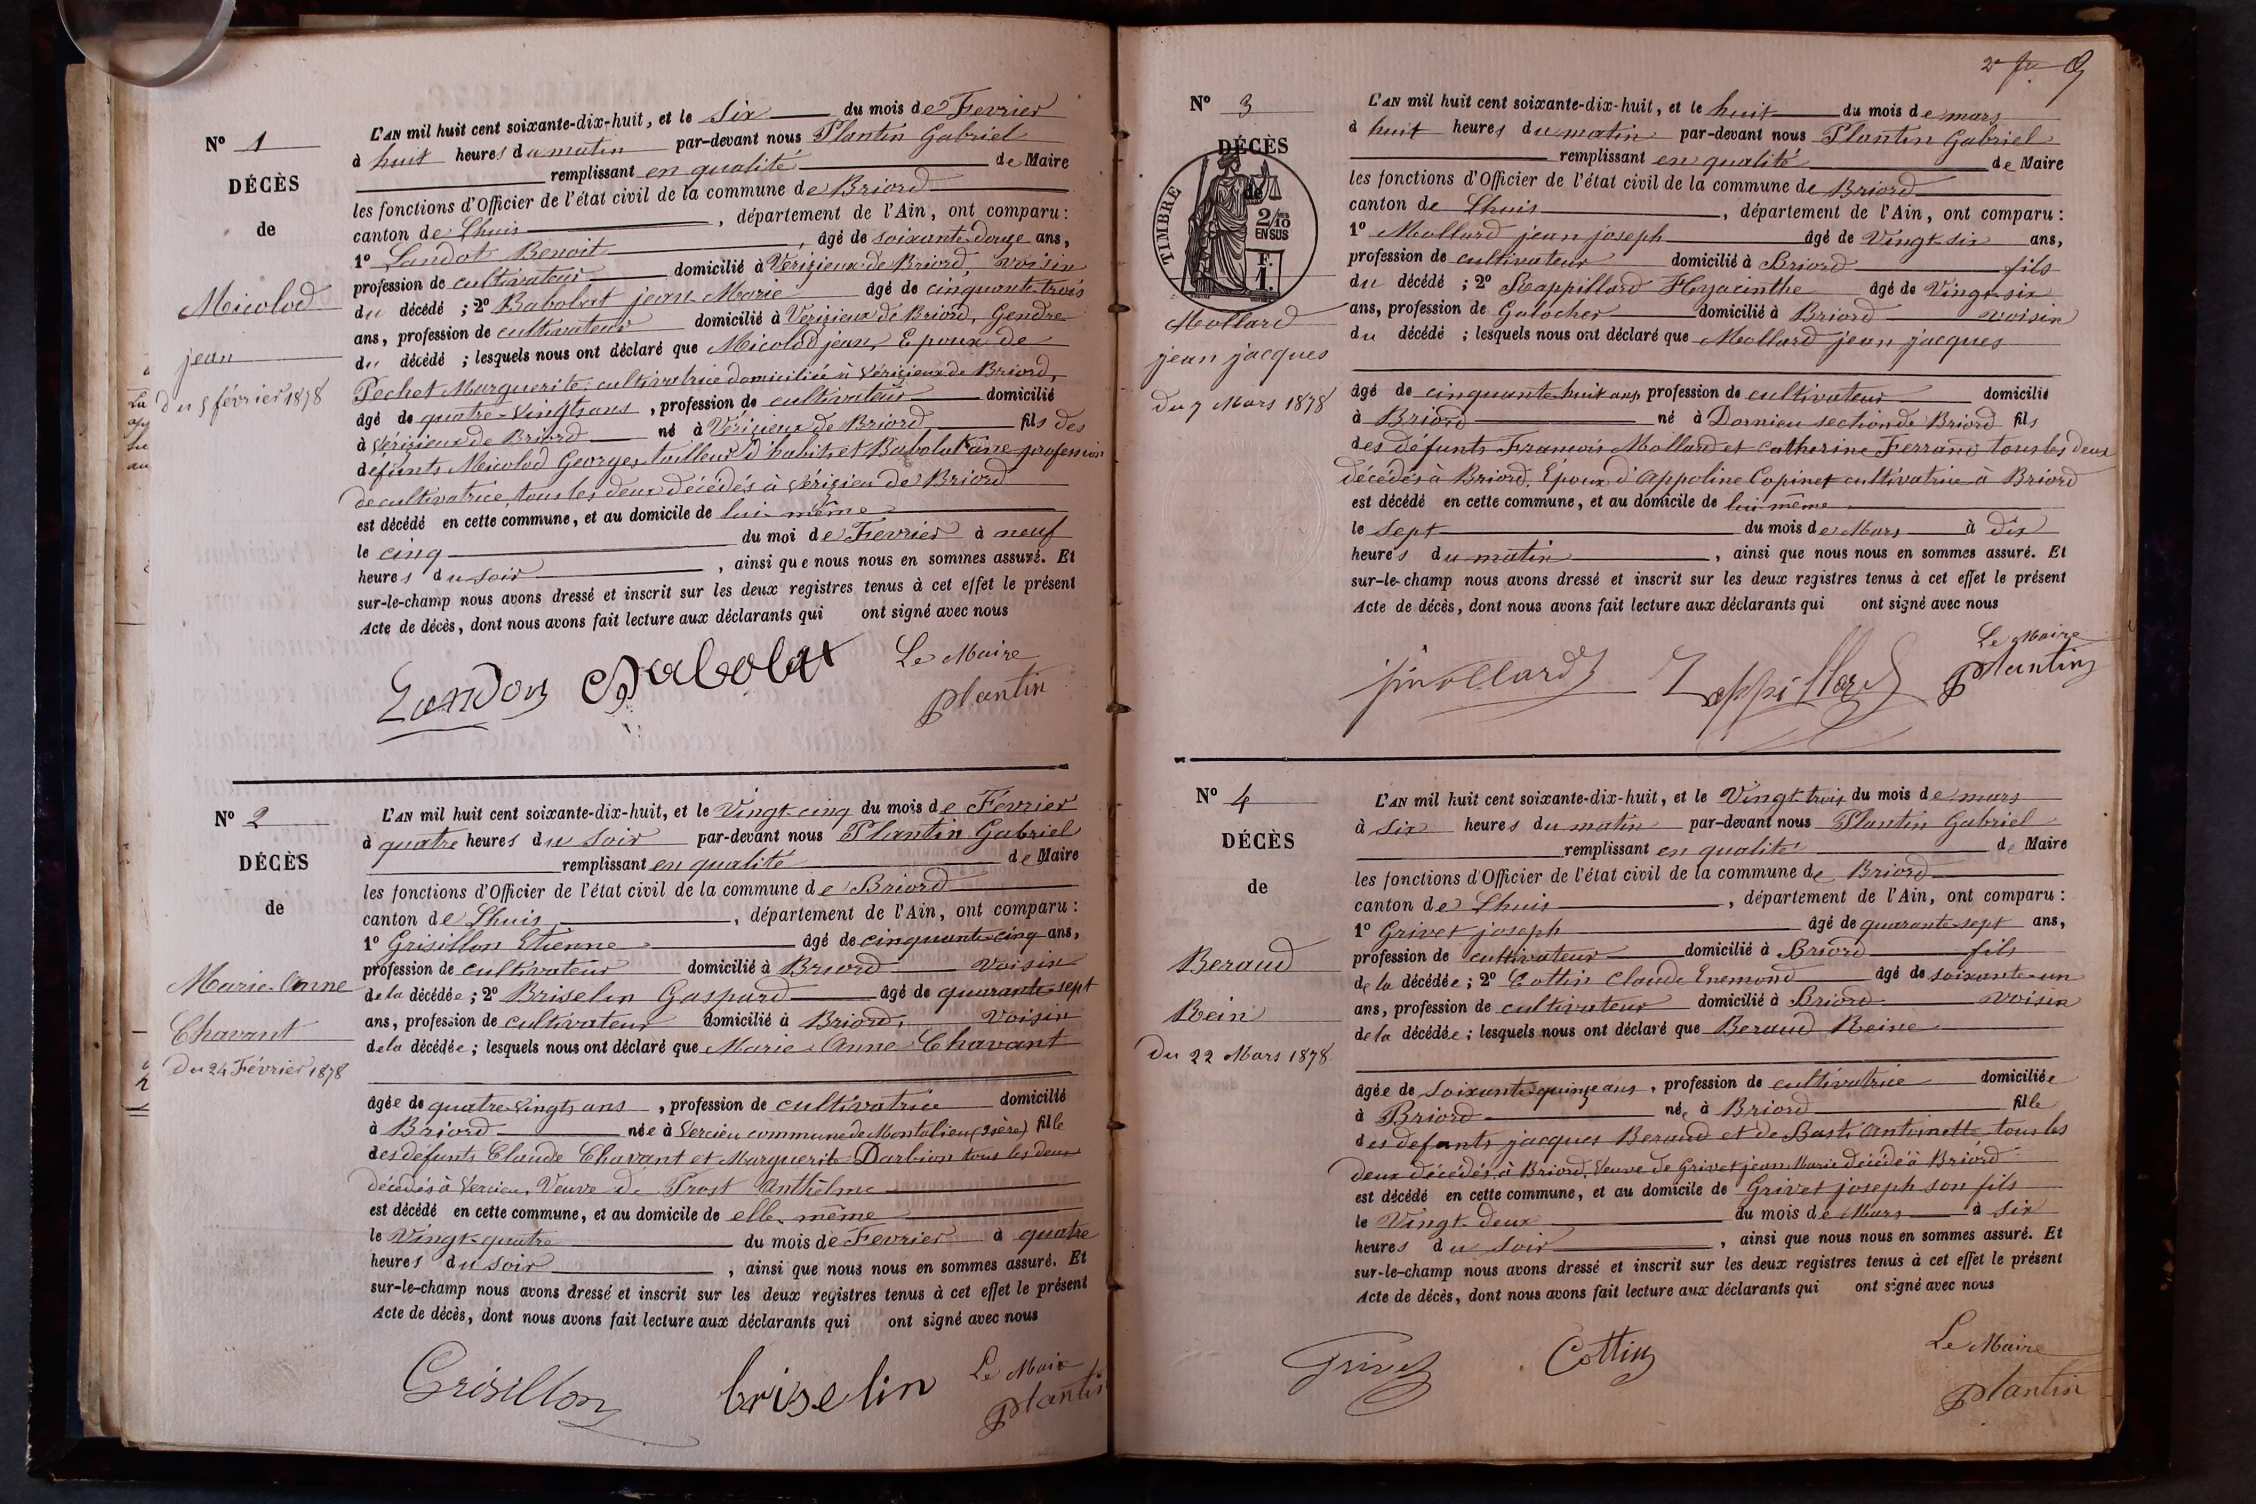 Nº 1
DÉCÈS
de
Micolod
jean
du 5 février 1878
L'AN mil huit cent soixante-dix-huit, et le Six du mois de Fevrier
à huit heures du matin par-devant nous Plantin Gabriel
remplissant en qualité de Maire
les fonctions d'Officier de l'état civil de la commune de Briord
canton de Lhuis, département de l'Ain, ont comparu :
1º Landot Benoit, âgé de soixante douze ans,
profession de cultivateur domicilié à Verizieux de Briord, voisin
du décédé ; 2º Babolat jean Marie âgé de cinquante trois
ans, profession de cultivateur domicilié à Vérizieux de Briord, Gendre
du décédé ; lesquels nous ont déclaré que Micolod jean, Epoux de
Pechet Marguerite, cultivatrice domiciliée à Vérizieux de Briord,
âgé de quatre-vingts ans, profession de cultivateur domicilié
à Vérizieux de Briord né à Vérizieux de Briord, fils des
défunts Micolod Georges tailleur d'habits et Babolat anne profession
de cultivatrice, tous les deux décédés à Vérizieu de Briord
est décédé en cette commune, et au domicile de lui-même
le cinq du moi de Fevrier à neuf
heures du soir, ainsi que nous nous en sommes assuré. Et
sur-le-champ nous avons dressé et inscrit sur les deux registres tenus à cet effet le présent
Acte de décès, dont nous avons fait lecture aux déclarants qui ont signé avec nous
Babolat Le Maire
Plantin
Nº 2
DÉCÈS
de
Marie-Anne
Chavant
Du 24 Février 1878
L'AN mil huit cent soixante-dix-huit, et le Vingt-cinq du mois de Février
à quatre heures du soir par-devant nous Plantin Gabriel
remplissant en qualité de Maire
les fonctions d'Officier de l'état civil de la commune de Briord
canton de Lhuis, département de l'Ain, ont comparu :
1º Grisillon Etienne âgé de cinquante-cinq ans,
profession de cultivateur domicilié à Briord voisin
de la décédée ; 2º Briselin Gaspard âgé de quarante sept
ans, profession de cultivateur domicilié à Briord, voisin
de la décédée ; lesquels nous ont déclaré que Marie-Anne Chavant
âgée de quatre-vingts ans, profession de cultivatrice domicilié
à Briord née à Vercieu commune de Montalieu (Isère) fille
des defunts Claude Chavant et Marguerite Darbion tous les deux
décédés à Vercieu, Veuve de Prost Anthelme
est décédé en cette commune, et au domicile de elle-même
le Vingt-quatre du mois de Fevrier à quatre
heures du soir, ainsi que nous nous en sommes assuré. Et
sur-le-champ nous avons dressé et inscrit sur les deux registres tenus à cet effet le présent
Acte de décès, dont nous avons fait lecture aux déclarants qui ont signé avec nous
Grisillon briselin Le Maire
Plantin
Nº 3
DÉCÈS
de
TIMBRE
2/10 EN SUS
F. 1.
Mollard
jean jacques
du 7 Mars 1878
L'AN mil huit cent soixante-dix-huit, et le huit du mois de mars
à huit heures du matin par-devant nous Plantin Gabriel
remplissant en qualité de Maire
les fonctions d'Officier de l'état civil de la commune de Briord
canton de Lhuis, département de l'Ain, ont comparu :
1º Mollard jean joseph âgé de Vingt-six ans,
profession de cultivateur domicilié à Briord fils
du décédé ; 2º Rappillard Hyacinthe âgé de Vingt-six
ans, profession de Galocher domicilié à Briord voisin
du décédé ; lesquels nous ont déclaré que Mollard jean jacques
âgé de cinquante-huit ans profession de cultivateur domicilié
à Briord né à Dornieu section de Briord fils
des défunts Francois Mollard et catherine Ferrand tous les deux
décédés à Briord. Époux d'Appoline Copinet cultivatrice à Briord
est décédé en cette commune, et au domicile de lui-même
le Sept du mois de Mars à dix
heures du matin, ainsi que nous nous en sommes assuré. Et
sur-le-champ nous avons dressé et inscrit sur les deux registres tenus à cet effet le présent
Acte de décès, dont nous avons fait lecture aux déclarants qui ont signé avec nous
Le Maire
Plantin
Nº 4
DÉCÈS
de
Beraud
Rein
Du 22 Mars 1878
L'AN mil huit cent soixante-dix-huit, et le Vingt-trois du mois de mars
à six heures du matin par-devant nous Plantin Gabriel
remplissant en qualité de Maire
les fonctions d'Officier de l'état civil de la commune de Briord
canton de Lhuis, département de l'Ain, ont comparu :
1º Grivet joseph âgé de quarante-sept ans,
profession de cultivateur domicilié à Briord fils
de la décédée ; 2º Cottin Claude Enemond âgé de soixante-un
ans, profession de cultivateur domicilié à Briord voisin
de la décédée ; lesquels nous ont déclaré que Beraud Reine
âgée de soixante-quinze ans, profession de cultivatrice domiciliée
à Briord née à Briord fille
des defunts jacques Beraud et de Bast Antoinette tous les
deux décédés à Briord, Veuve de Grivet jean Marie décédé à Briord
est décédé en cette commune, et au domicile de Grivet joseph son fils
le Vingt-deux du mois de Mars à six
heures du soir, ainsi que nous nous en sommes assuré. Et
sur-le-champ nous avons dressé et inscrit sur les deux registres tenus à cet effet le présent
Acte de décès, dont nous avons fait lecture aux déclarants qui ont signé avec nous
Grivet Cottin Le Maire
Plantin